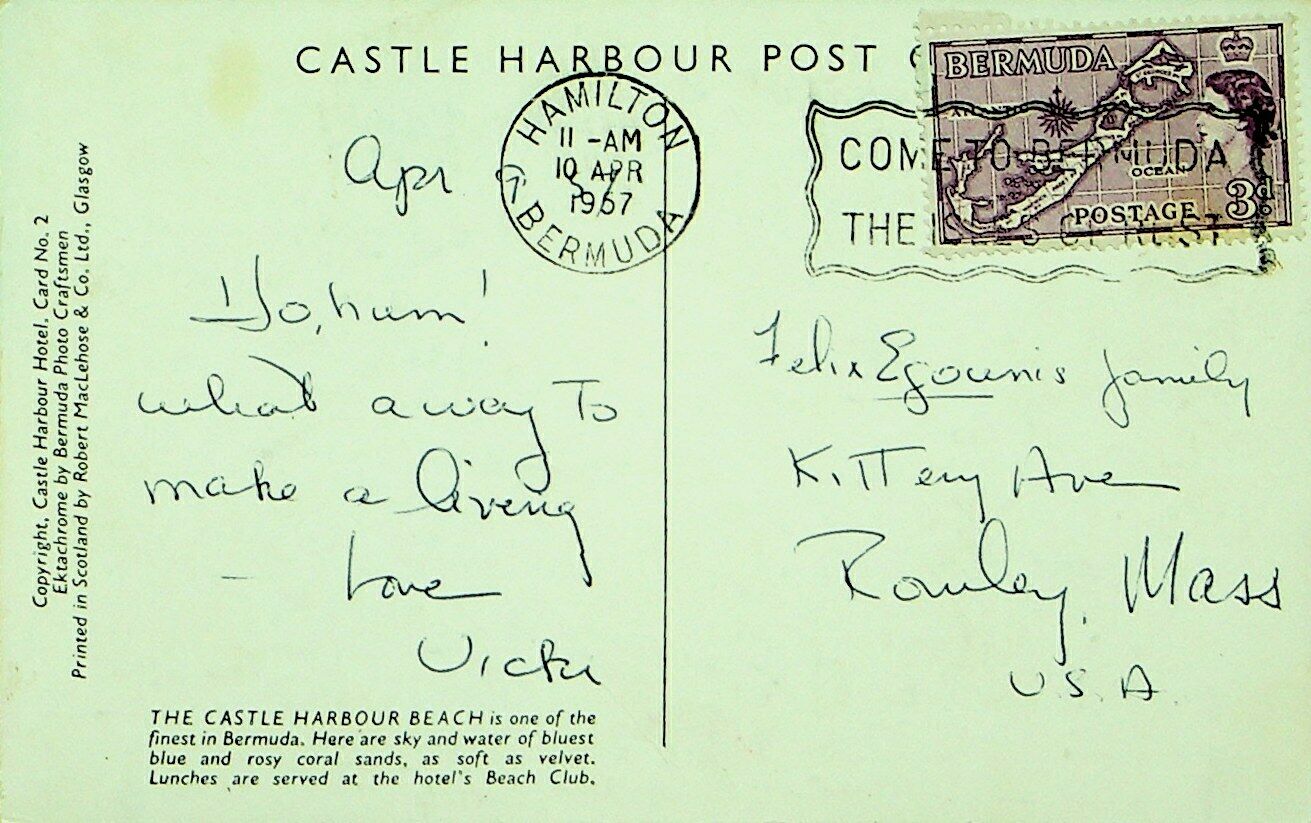 CASTLE HARBOUR POST
HAMILTON
11 -AM
10 APR
1957
BERMUDA
COME TO BERMUDA
THE ISLES OF REST
BERMUDA
ATLANTIC
OCEAN
POSTAGE
3d
Copyright, Castle Harbour Hotel. Card No. 2
Ektachrome by Bermuda Photo Craftsmen
Printed in Scotland by Robert MacLehose & Co. Ltd., Glasgow
Apr
Ho, hum!
what a way To
make a living
- Love
Vicki
Felix Egounis family
Kittery Ave
Rowley, Mass
U.S.A.
THE CASTLE HARBOUR BEACH is one of the
finest in Bermuda. Here are sky and water of bluest
blue and rosy coral sands, as soft as velvet.
Lunches are served at the hotel's Beach Club.